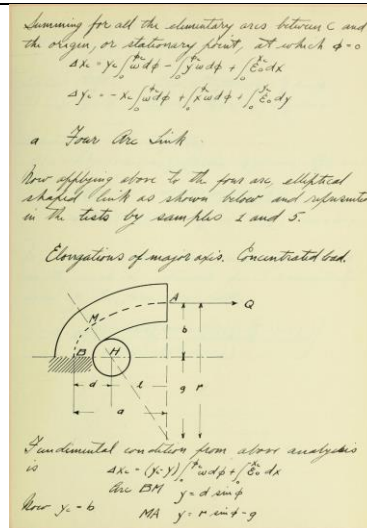 Summing for all the elementary arcs between C and
the origin, or stationary point, at which φ=0
Δxc = yc∫ωdφ - ∫yωdφ + ∫ε₀dx
Δyc = -xc∫ωdφ + ∫xωdφ + ∫ε₀dy
a Four Arc Link
Now applying above to the four arc, elliptical
shaped link as shown below and represented
in the tests by samples 1 and 5.
Elongations of major axis. Concentrated load.
A
Q
M
b
B
H
d
l
g
r
a
Fundimental condition from above analysis
is Δxc = (yc-y)∫ωdφ + ∫ε₀dx
Arc BM y = d sin φ
Now yc = b MA y = r sin φ - g